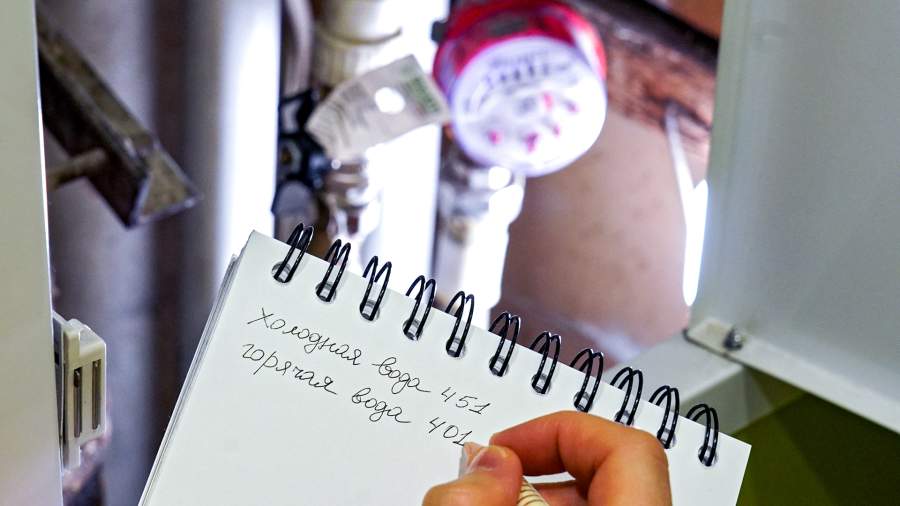 холодная вода 451
горячая вода 401